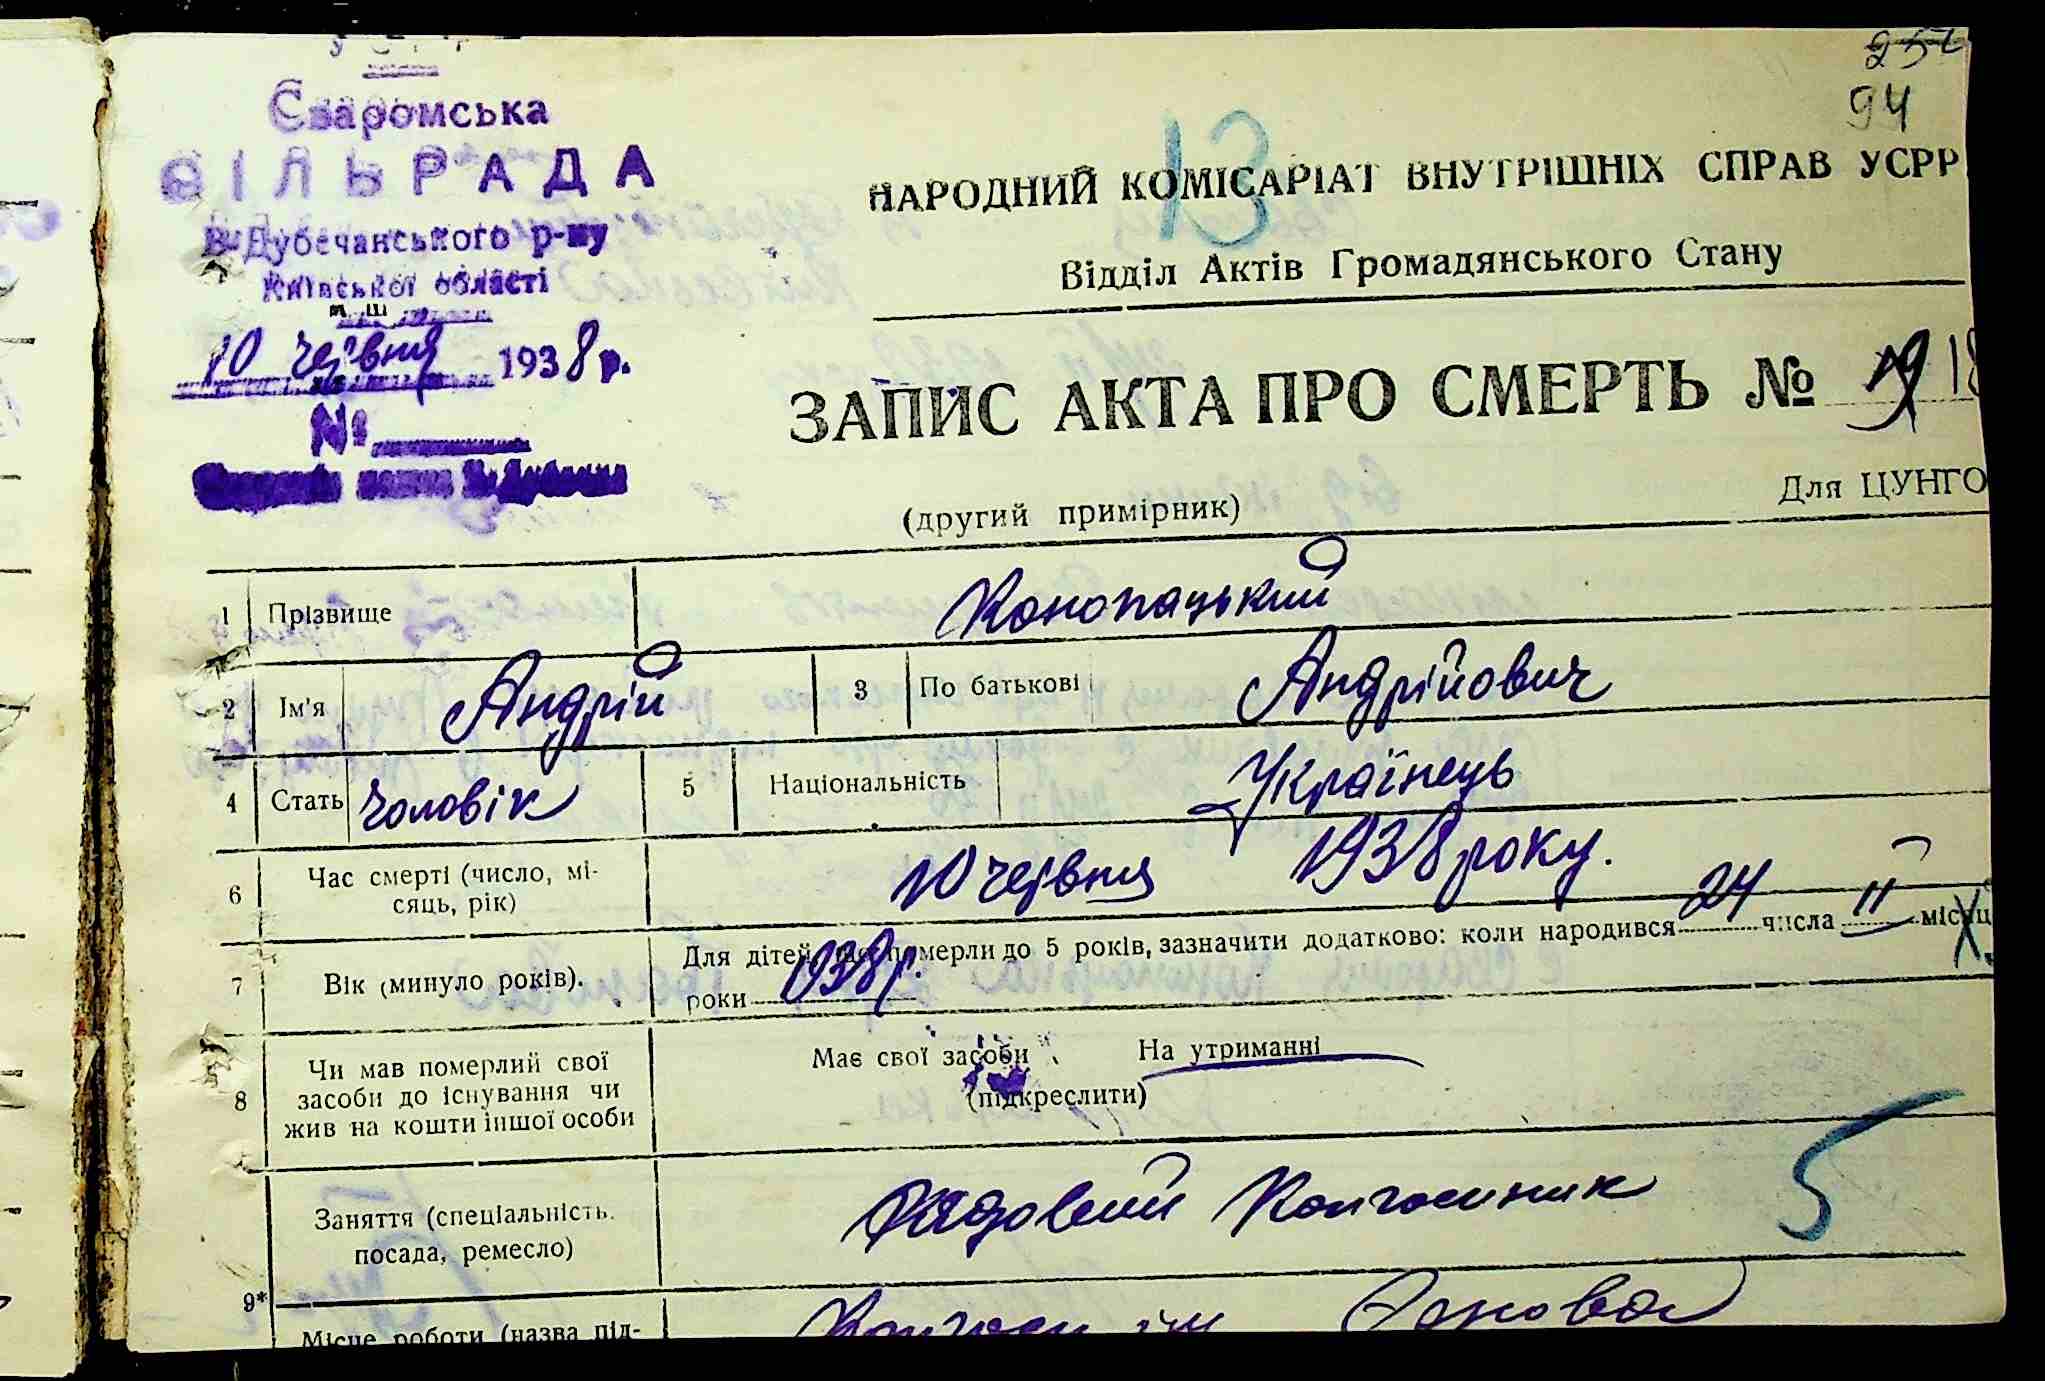 252
94
Сваромська
СІЛЬРАДА
В-Дубечанського р-ну
Київської області
10 червня 1938 р.
№
13
НАРОДНИЙ КОМІСАРІАТ ВНУТРІШНІХ СПРАВ УСРР
Відділ Актів Громадянського Стану
ЗАПИС АКТА ПРО СМЕРТЬ № 19 18
Для ЦУНГО
(другий примірник)
1 Прізвище Конопацький
2 Ім'я Андрій 3 По батькові Андрійович
4 Стать Чоловік 5 Національність Українець
6 Час смерті (число, мі-
сяць, рік) 10 червня 1938 року.
7 Вік (минуло років). Для дітей, що померли до 5 років, зазначити додатково: коли народився 24 числа II місяц
роки 1938 р.
8 Чи мав померлий свої
засоби до існування чи
жив на кошти іншої особи
Має свої засоби На утриманні
(підкреслити)
9* Заняття (спеціальність,
посада, ремесло) Рядовий Колгоспник
5
Місце роботи (назва під- Колгосп ім